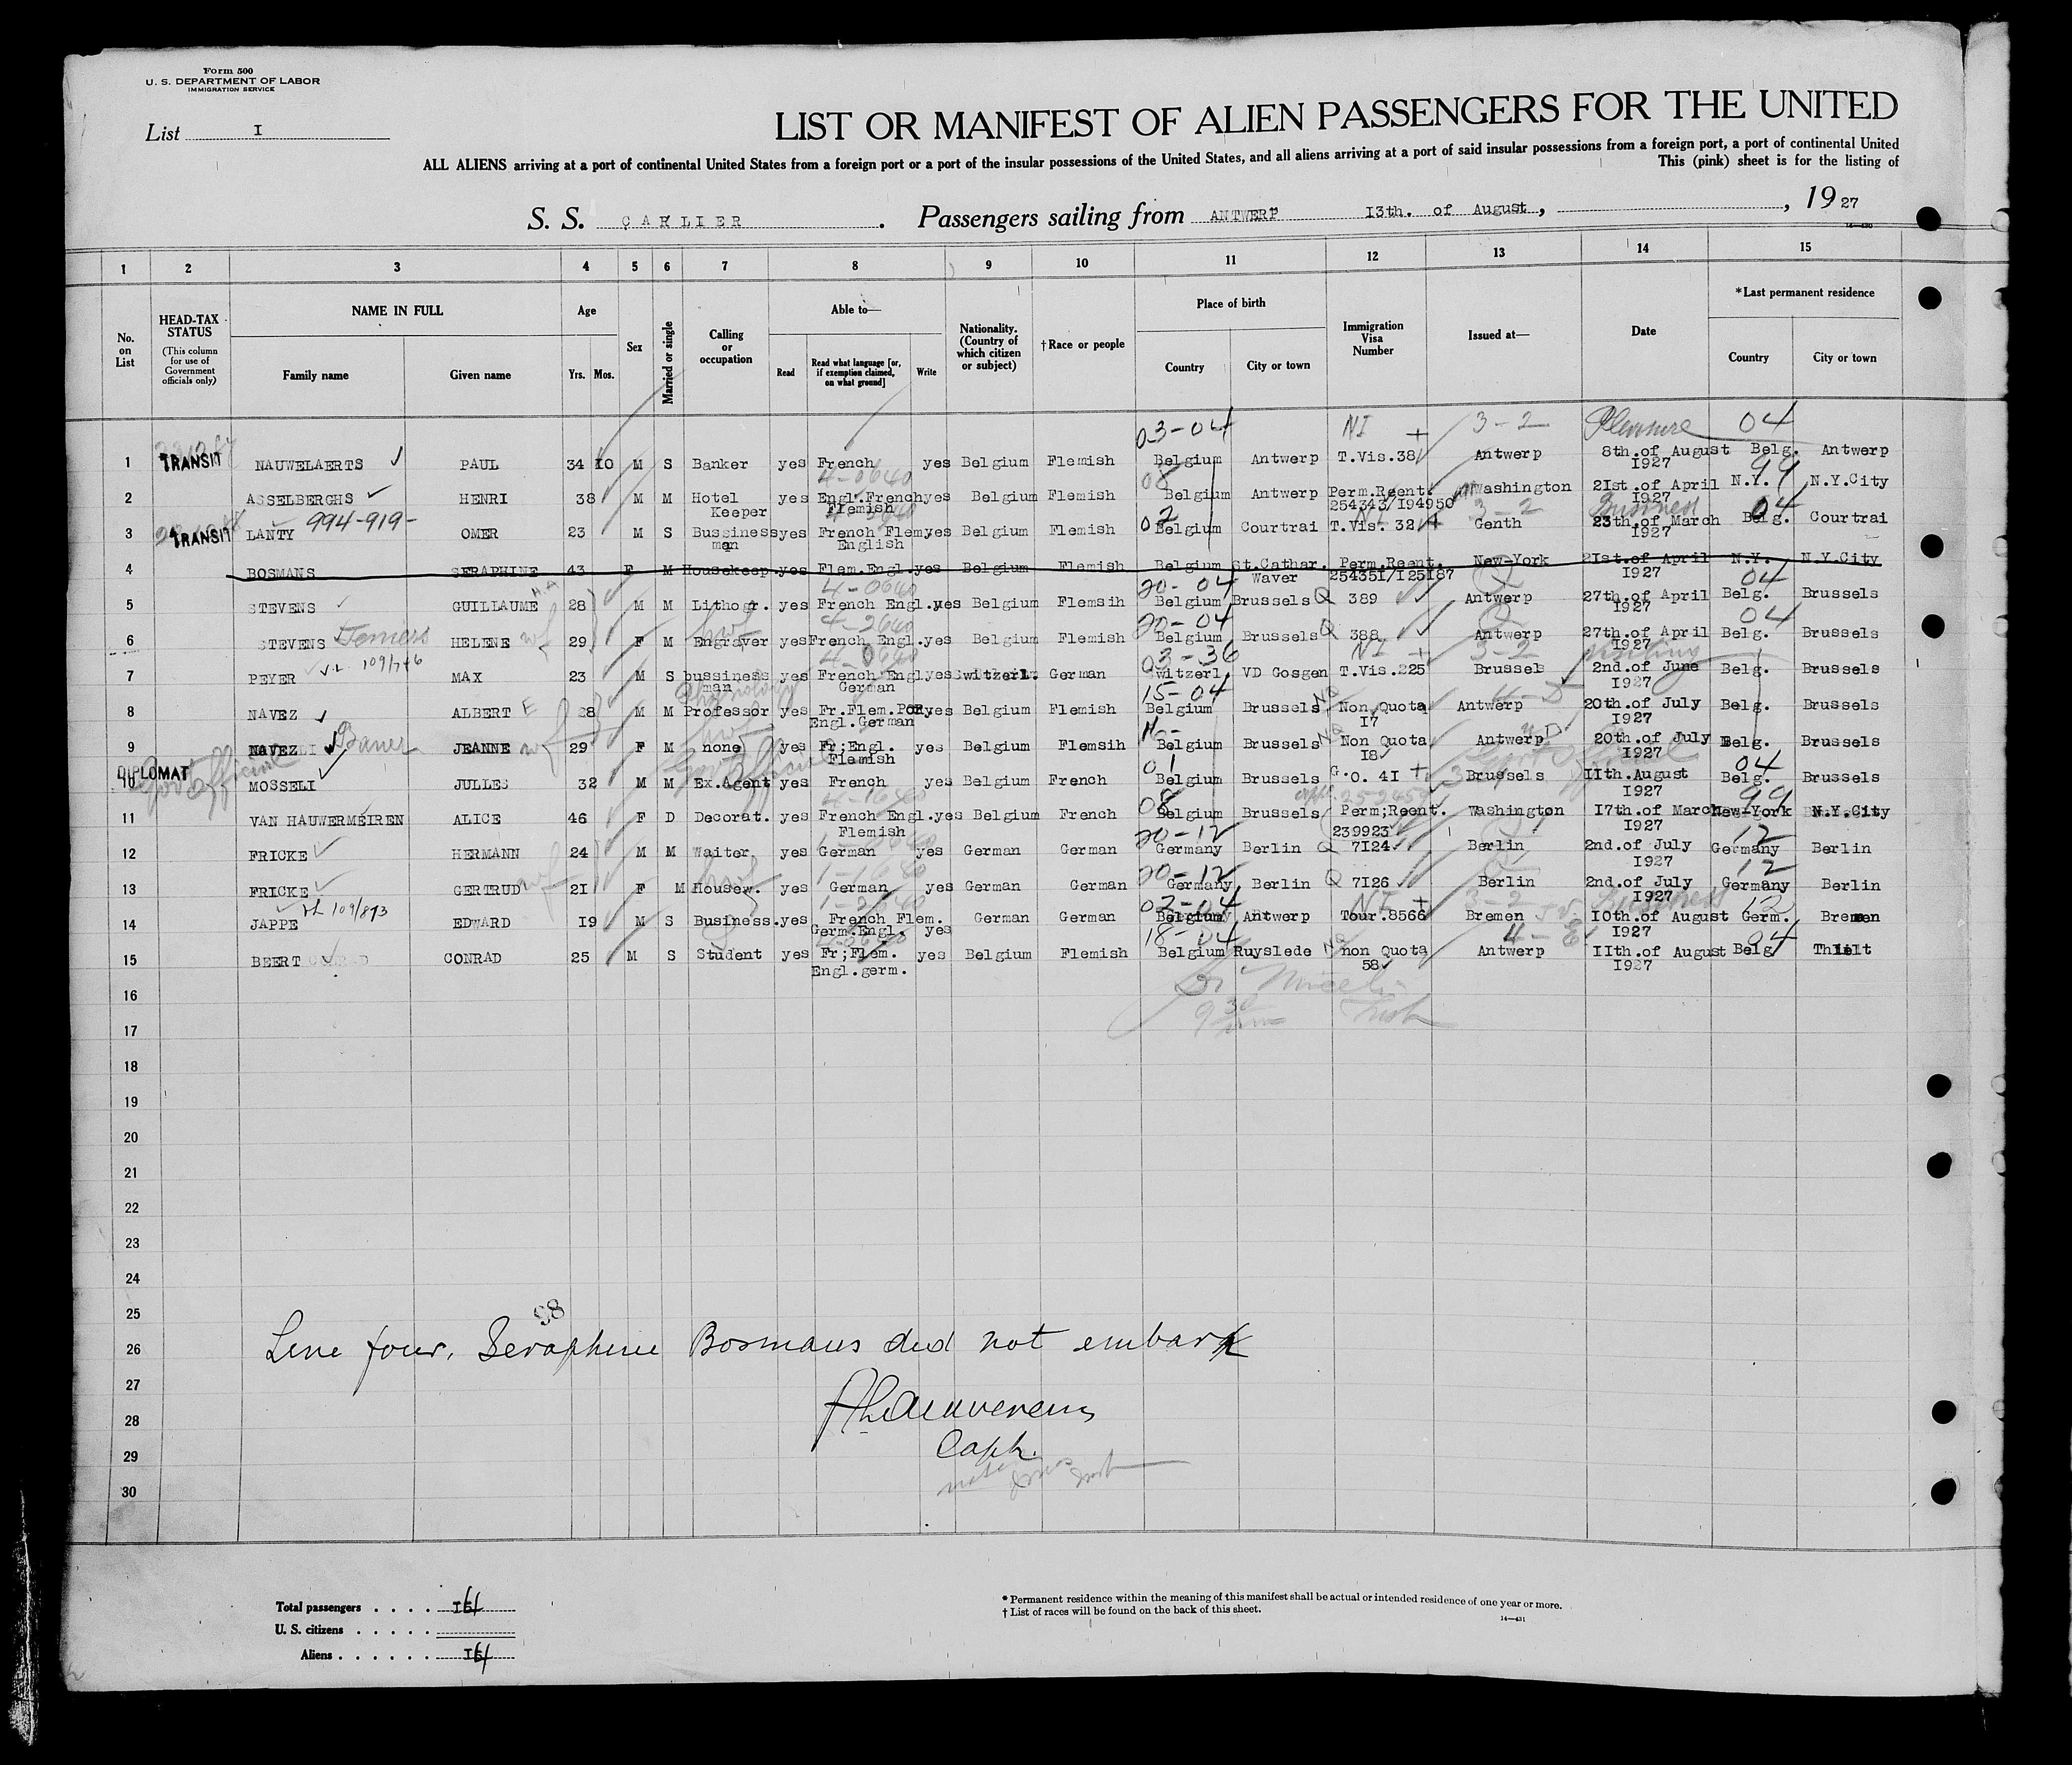 Form 500
U. S. DEPARTMENT OF LABOR
IMMIGRATION SERVICE
List I
LIST OR MANIFEST OF ALIEN PASSENGERS FOR THE UNITED
ALL ALIENS arriving at a port of continental United States from a foreign port or a port of the insular possessions of the United States, and all aliens arriving at a port of said insular possessions from a foreign port, a port of continental United
This (pink) sheet is for the listing of
S. S. CARLIER. Passengers sailing from ANTWERP 13th. of August, , 1927
1 2 3 4 5 6 7 8 9 10 11 12 13 14 15
No. on List
HEAD-TAX STATUS (This column for use of Government officials only)
NAME IN FULL
Family name Given name
Age
Yrs. Mos.
Sex
Married or single
Calling or occupation
Able to—
Read
Read what language [or, if exemption claimed, on what ground]
Write
Nationality. (Country of which citizen or subject)
†Race or people
Place of birth
Country City or town
Immigration Visa Number
Issued at—
Date
*Last permanent residence
Country City or town
03-04 NI + 3-2 Pleasure 04
1 TRANSIT NAUWELAERTS PAUL 34 10 M S Banker yes French yes Belgium Flemish Belgium Antwerp T.Vis.38 Antwerp 8th.of August I927 Belg. Antwerp
4-0640 08 99
2 ASSELBERGHS HENRI 38 M M Hotel Keeper yes Engl.French Flemish yes Belgium Flemish Belgium Antwerp Perm.Reent. 254343/I94950 Washington 2Ist.of April I927 N.Y. N.Y.City
994-919- 02 3-2 04
3 TRANSIT LANTY OMER 23 M S Bussiness man yes French Flem English yes Belgium Flemish Belgium Courtrai T.Vis. 32 Genth 23th.of March I927 Belg. Courtrai
4 BOSMANS SERAPHINE 43 F M Housekeep. yes Flem.Engl. yes Belgium Flemish Belgium St.Cathar. Waver Perm.Reent. 25435I/I25I87 New-York 2Ist.of April I927 N.Y. N.Y.City
4-0640 20-04 Q 04
5 STEVENS GUILLAUME 28 M M Lithogr. yes French Engl. yes Belgium Flemsih Belgium Brussels Q 389 Antwerp 27th.of April I927 Belg. Brussels
wf 4-2640 20-04 Q 04
6 STEVENS HELENE wf 29 F M Engraver yes French Engl. yes Belgium Flemish Belgium Brussels Q 388 Antwerp 27th.of April I927 Belg. Brussels
109/746 4-0640 03-36 NI + 3-2 visiting
7 PEYER MAX 23 M S bussiness man yes French Engl. German yes Switzerl. German Switzerl. VD Gosgen T.Vis.225 Brussels 2nd.of June I927 Belg. Brussels
15-04 4-D
8 NAVEZ ALBERT 28 M M Professor yes Fr.Flem.Por Engl.German yes Belgium Flemish Belgium Brussels Non Quota I7 Antwerp 20th.of July I927 Belg. Brussels
9 NAVEZ Bauer JEANNE wf 29 F M none yes Fr;Engl. Flemish yes Belgium Flemsih Belgium Brussels Non Quota I8 Antwerp 20th.of July I927 Belg. Brussels
DIPLOMAT Gov't Official 01 04
10 MOSSELI JULLES 32 M M Ex.Agent yes French yes Belgium French Belgium Brussels G.O. 4I + Brussels IIth.August I927 Belg. Brussels
08 99
11 VAN HAUWERMEIREN ALICE 46 F D Decorat. yes French Engl. Flemish yes Belgium French Belgium Brussels Perm;Reent. 239923 Washington I7th.of March I927 New-York N.Y.City
20-12 12
12 FRICKE HERMANN 24 M M Waiter yes German yes German German Germany Berlin Q 7I24 Berlin 2nd.of July I927 Germany Berlin
20-12 12
13 FRICKE GERTRUD wf 2I F M Housew. yes German yes German German Germany Berlin Q 7I26 Berlin 2nd.of July I927 Germany Berlin
109/893 03-04 NI + 3-2 Business 12
14 JAPPE EDWARD I9 M S Business. yes French Flem. Germ.Engl. yes German German Belgium Antwerp Tour.8566 Bremen I0th.of August I927 Germ. Bremen
18-04 4-E 04
15 BEERT CONRAD 25 M S Student yes Fr;Flem. Engl.germ. yes Belgium Flemish Belgium Ruyslede non Quota 58 Antwerp IIth.of August I927 Belg Thielt
16
17
18
19
20
21
22
23
24
25
98
26 Line four, Seraphine Bosmans did not embark
27
28
29 Capt.
30
Total passengers . . . .
U. S. citizens . . . . .
Aliens . . . . . .
* Permanent residence within the meaning of this manifest shall be actual or intended residence of one year or more.
† List of races will be found on the back of this sheet.
14—431